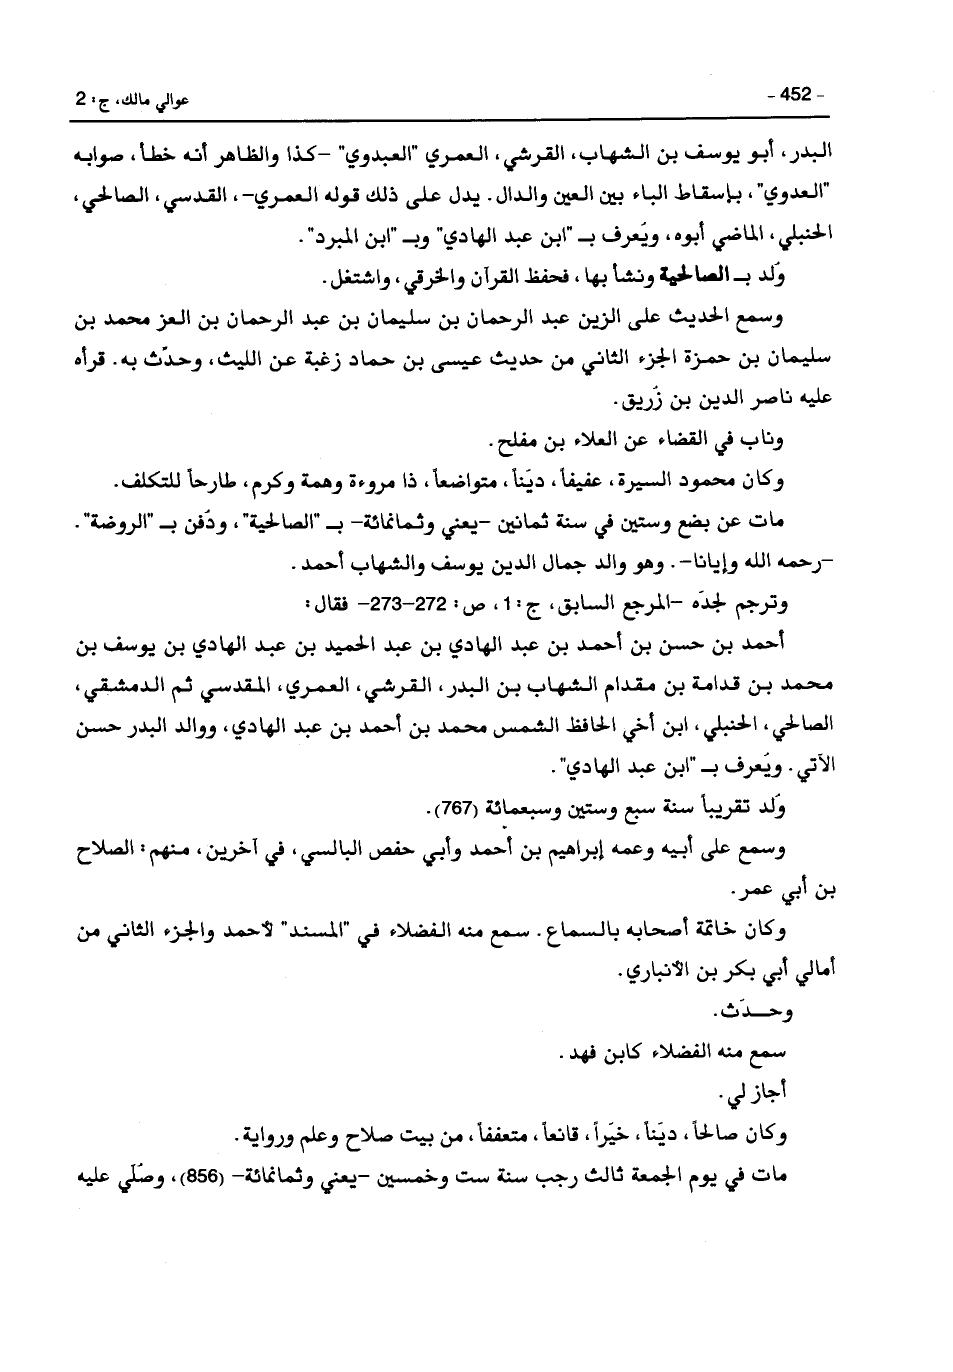 - 452 -
عوالي مالك، ج: 2
البدر، أبو يوسف بن الشهاب، القرشي، العمري "العبدوي" -كذا والظاهر أنه خطأ، صوابه
"العدوي"، بإسقاط الباء بين العين والدال. يدل على ذلك قوله العمري-، القدسي، الصالحي،
الحنبلي، الماضي أبوه، ويُعرف بـ "ابن عبد الهادي" وبـ "ابن المبرد".
وُلد بـ الصالحية ونشأ بها، فحفظ القرآن والخرقي، واشتغل.
وسمع الحديث على الزين عبد الرحمان بن سليمان بن عبد الرحمان بن العز محمد بن
سليمان بن حمزة الجزء الثاني من حديث عيسى بن حماد زغبة عن الليث، وحدّث به. قرأه
عليه ناصر الدين بن زُريق.
وناب في القضاء عن العلاء بن مفلح.
وكان محمود السيرة، عفيفاً، ديّناً، متواضعاً، ذا مروءة وهمة وكرم، طارحاً للتكلف.
مات عن بضع وستين في سنة ثمانين -يعني وثمانمائة- بـ "الصالحية"، ودُفن بـ "الروضة".
-رحمه الله وإيانا-. وهو والد جمال الدين يوسف والشهاب أحمد.
وترجم لجدّه -المرجع السابق، ج: 1، ص: 272-273- فقال:
أحمد بن حسن بن أحمد بن عبد الهادي بن عبد الحميد بن عبد الهادي بن يوسف بن
محمد بن قدامة بن مقدام الشهاب بن البدر، القرشي، العمري، المقدسي ثم الدمشقي،
الصالحي، الحنبلي، ابن أخي الحافظ الشمس محمد بن أحمد بن عبد الهادي، ووالد البدر حسن
الآتي. ويُعرف بـ "ابن عبد الهادي".
وُلد تقريباً سنة سبع وستين وسبعمائة (767).
وسمع على أبيه وعمه إبراهيم بن أحمد وأبي حفص البالسي، في آخرين، منهم: الصلاح
بن أبي عمر.
وكان خاتمة أصحابه بالسماع. سمع منه الفضلاء في "المسند" لأحمد والجزء الثاني من
أمالي أبي بكر بن الأنباري.
وحـــدّث.
سمع منه الفضلاء كابن فهد.
أجاز لي.
وكان صالحاً، ديّناً، خيّراً، قانعاً، متعففاً، من بيت صلاح وعلم ورواية.
مات في يوم الجمعة ثالث رجب سنة ست وخمسين -يعني وثمانمائة- (856)، وصُلّي عليه